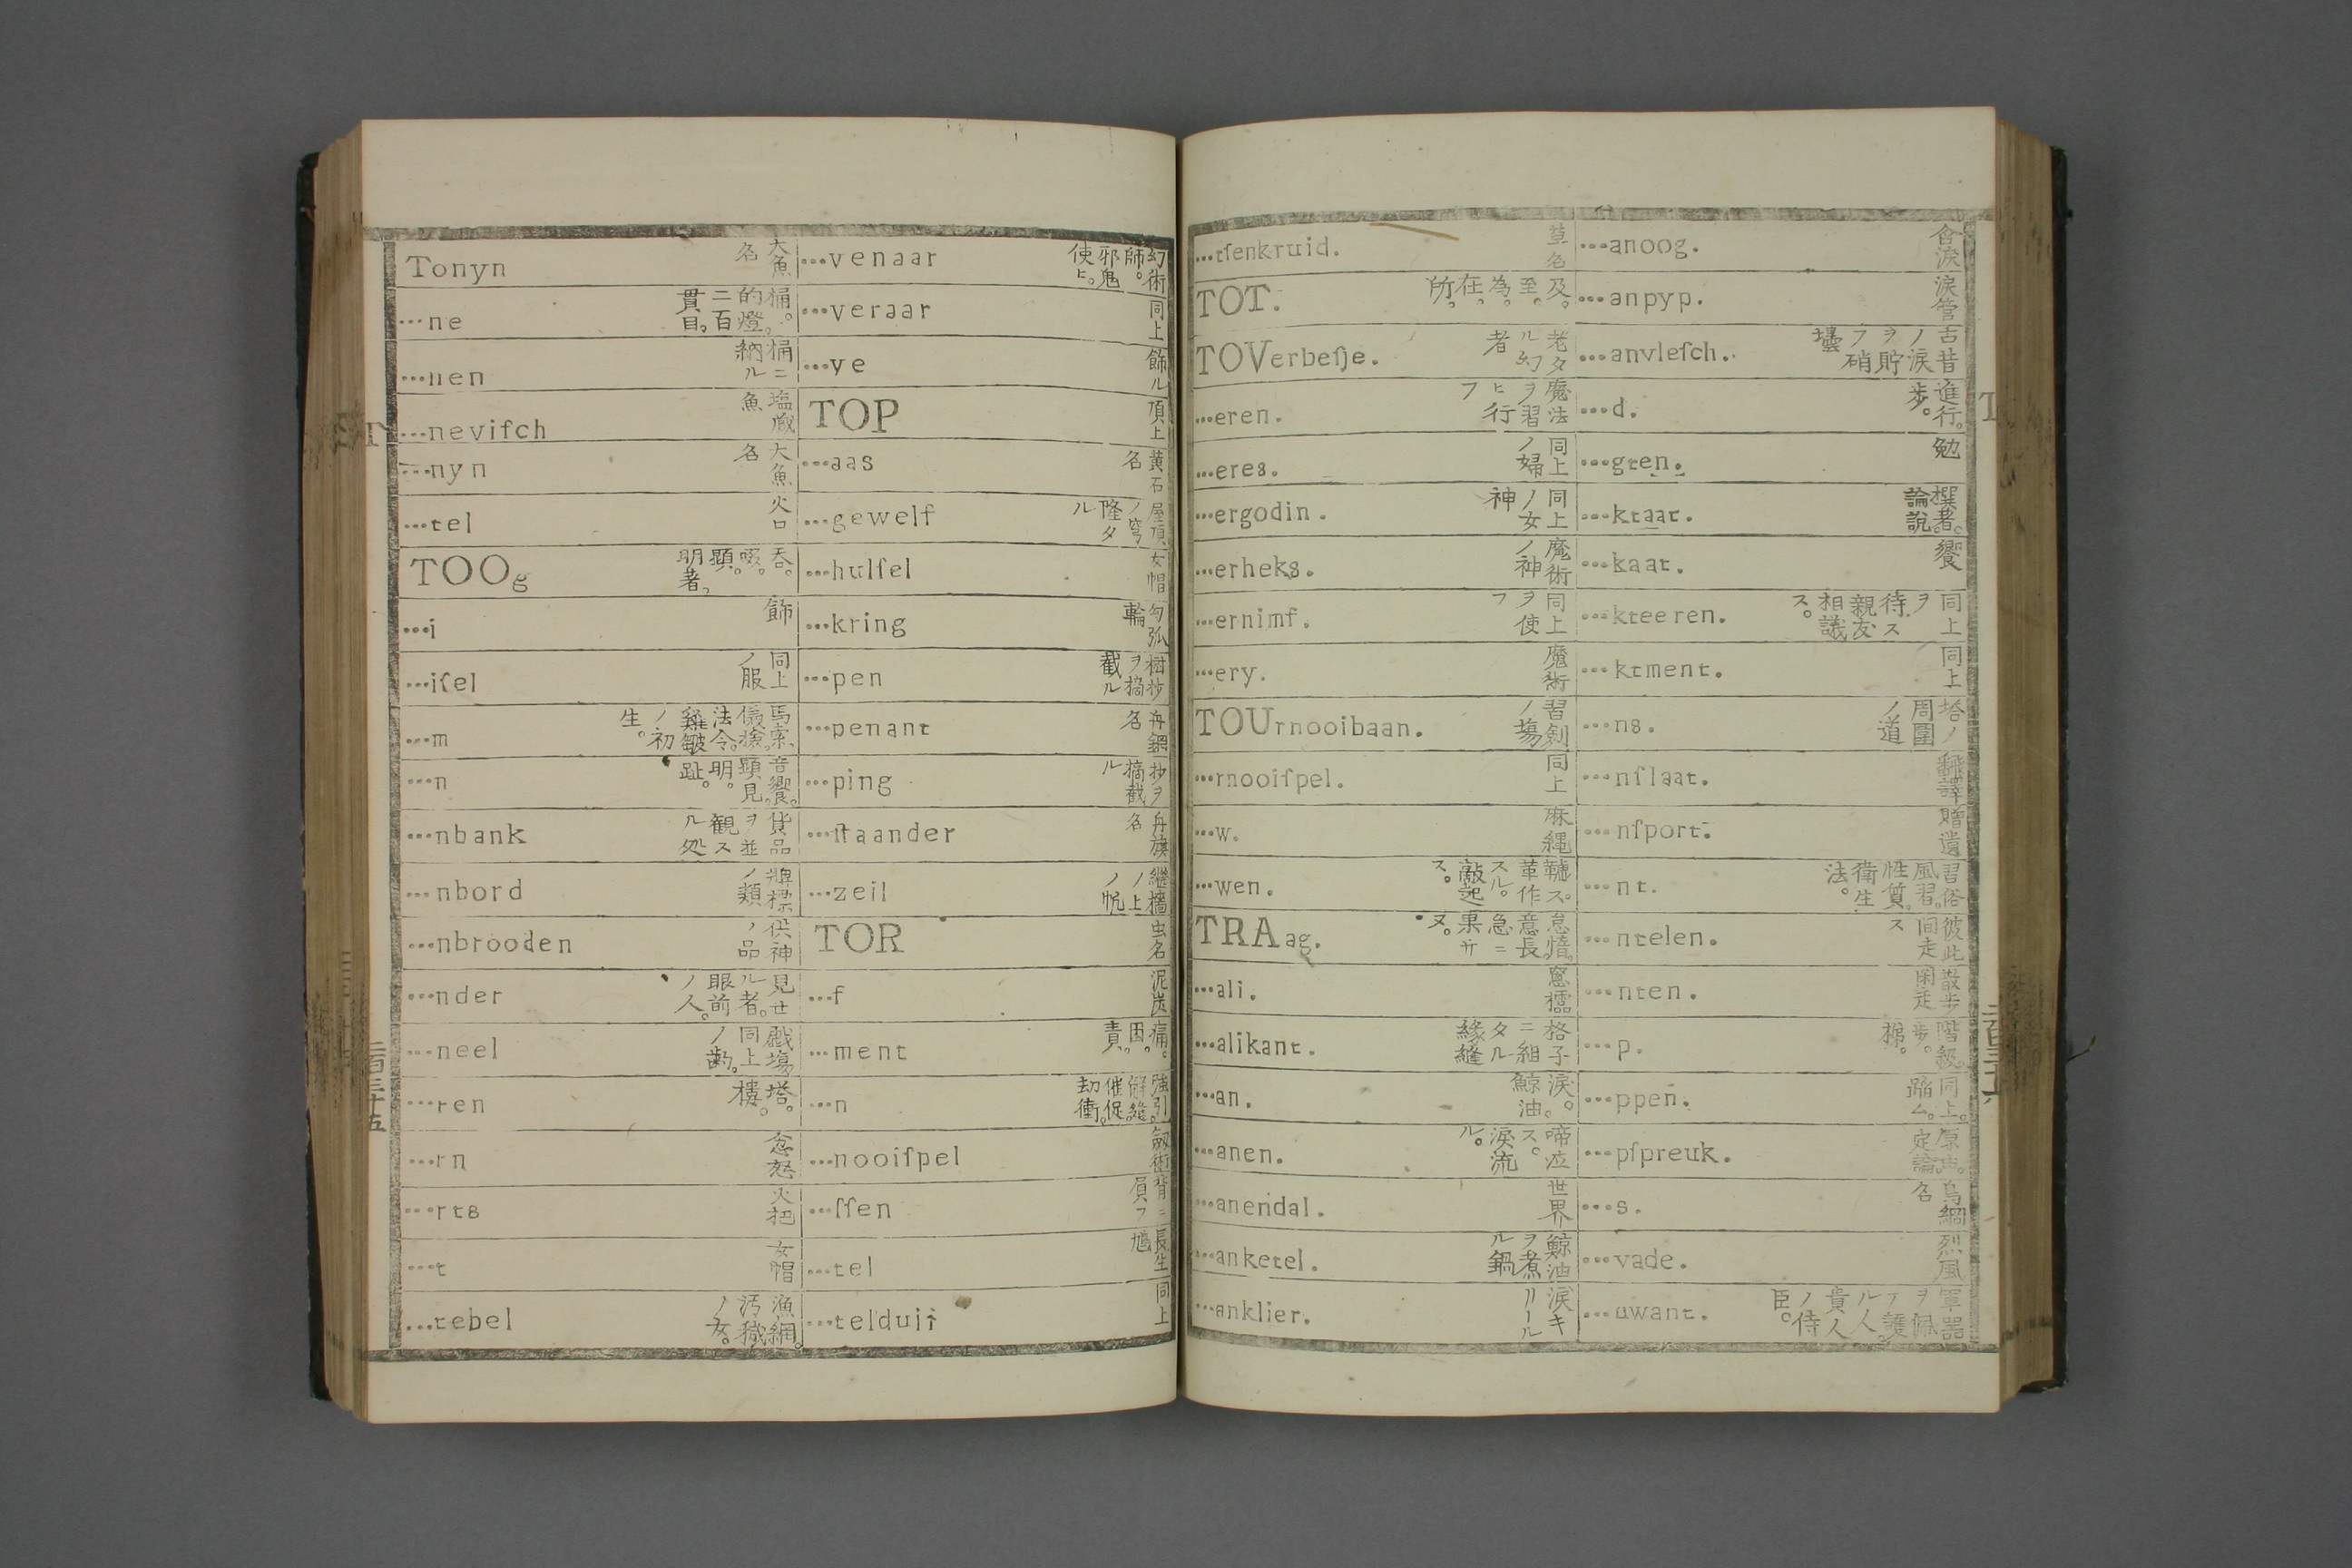 Tonyn 大魚名
...ne 桶。的燈。二百貫目。
...nen 桶ニ納ル
...nevifch 塩蔵魚
...nyn 大魚名
...tel 火口
TOOg 呑。啜。顕。明者。
...i 飾
...ifel 同上ノ服
...m
...n 音響。顕見。明。趾。
...nbank 貨品ヲ並観スル処
...nbord 牌標ノ類
...nbrooden 供神ノ品
...nder 見セル者。眼前ノ人。
...neel 戯場同上ノ
...ren 塔。樓。
...rn 忿怒
...rts 火把
...t 女帽
...tebel 漁網。汚穢ノ女。
...venaar 幻術師。邪鬼使ヒ。
...veraar 同上
...ye 飾ル
TOP 頂上
...aas 黄石名
...gewelf 屋頂ノ穹隆タル
...hulfel 女帽
...kring 勾弧輪
...pen 樹抄ヲ摘截ル
...penant 舟網名
...ping 抄ヲ摘截ル
...ftaander 舟旗名
...zeil 継檣ノ上ノ帆
TOR 虫名
...f 泥炭
...ment 痛。困。責。
...n 強引。解縫。催促。劫衝。
...nooifpel 劔術
...ffen 背ニ負フ
...tel 長生鳩
...telduif 同上
T
二百三十五
...tfenkruid. 草名
TOT. 及。至。為。在。所。
TOVerbefje. 老タル幻者
...eren. 魔法ヲ習ヒ行フ
...eres. 同上ノ婦
...ergodin. 同上ノ女神
...erheks. 魔術ノ神
...ernimf. 同上ヲ使フ
...ery. 魔術
TOUrnooibaan. 習劍ノ場
...rnooifpel. 同上
...w. 麻縄
...wen. 轆ス。革作スル。敲起ス。
TRAag. 怠惰。意長。急ニ果サヌ。
...ali. 窓櫺
...alikant. 格子ニ組タル縁縫
...an. 涙。鯨油。
...anen. 啼泣ス。涙流ル。
...anendal. 世界
...anketel. 鯨油ヲ煮ル鍋
...anklier. 涙キリール
...anoog. 含涙
...anpyp. 涙管
...anvlefch. 古昔ノ涙ヲ貯フ硝壜
...d. 進行。歩。
...gten. 勉
...ktaat. 撰者。論説。
...kaat. 饗
...kteeren. 同上ヲ待ス親友相議ス。
...ktment. 同上
...ns. 塔ノ周圍ノ道
...nflaat. 翻譯
...nfport. 贈遺
...nt. 習俗風習。性質。衛生法。
...ntelen. 彼此間走ス
...nten. 散歩閑走
...p. 階級。歩。梯。
...ppen. 同上。蹈ム。
...pfpreuk. 定論
...s. 鳥網名
...vade. 烈風
...uwant. 軍器ヲ佩テ護ル人。貴人ノ侍臣。
T